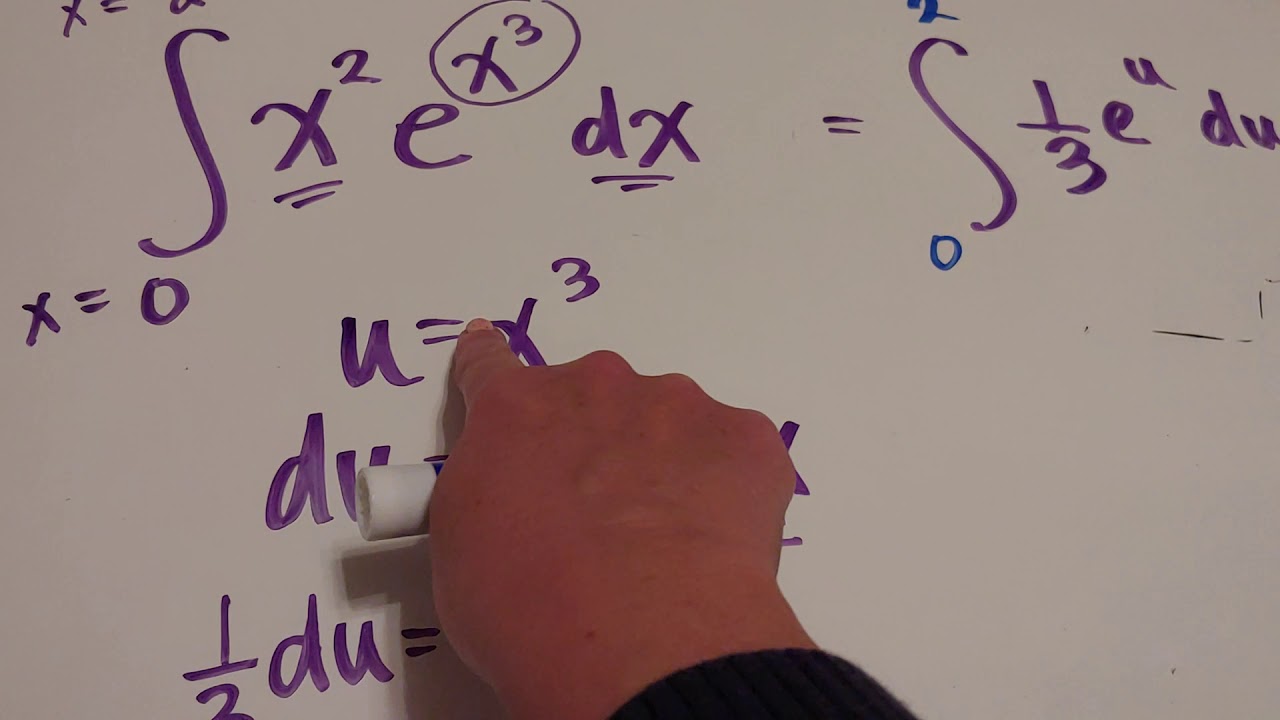 x=
∫ x² e^(x³) dx = ∫₀² 1/3 e^u du
x = 0
u = x³
du
1/3 du =